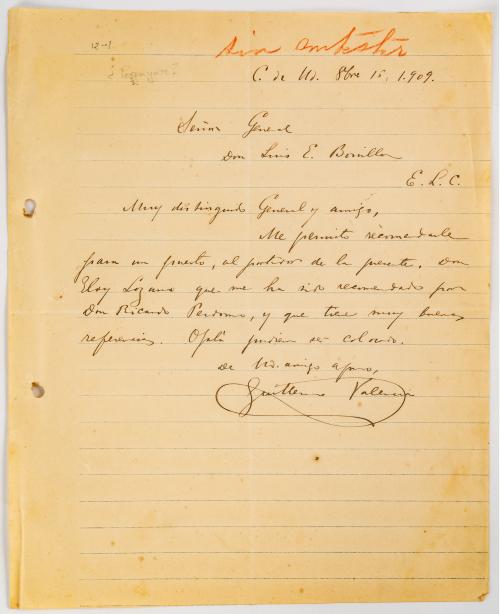 12-1
sin contestar
C. de Ud. 8bre 15, 1.909.
Señor General
Don Luis E. Bonilla
E. L. C.
Muy distinguido General y amigo,
Me permito recomendarle
para un puesto, al portador de la presente. Don
Eloy Lozano que me ha sido recomendado por
Don Ricardo Perdomo, y que tiene muy buenas
referencias. Ojalá pudiera ser colocado.
De Ud. amigo afmo,
Guillermo Valencia